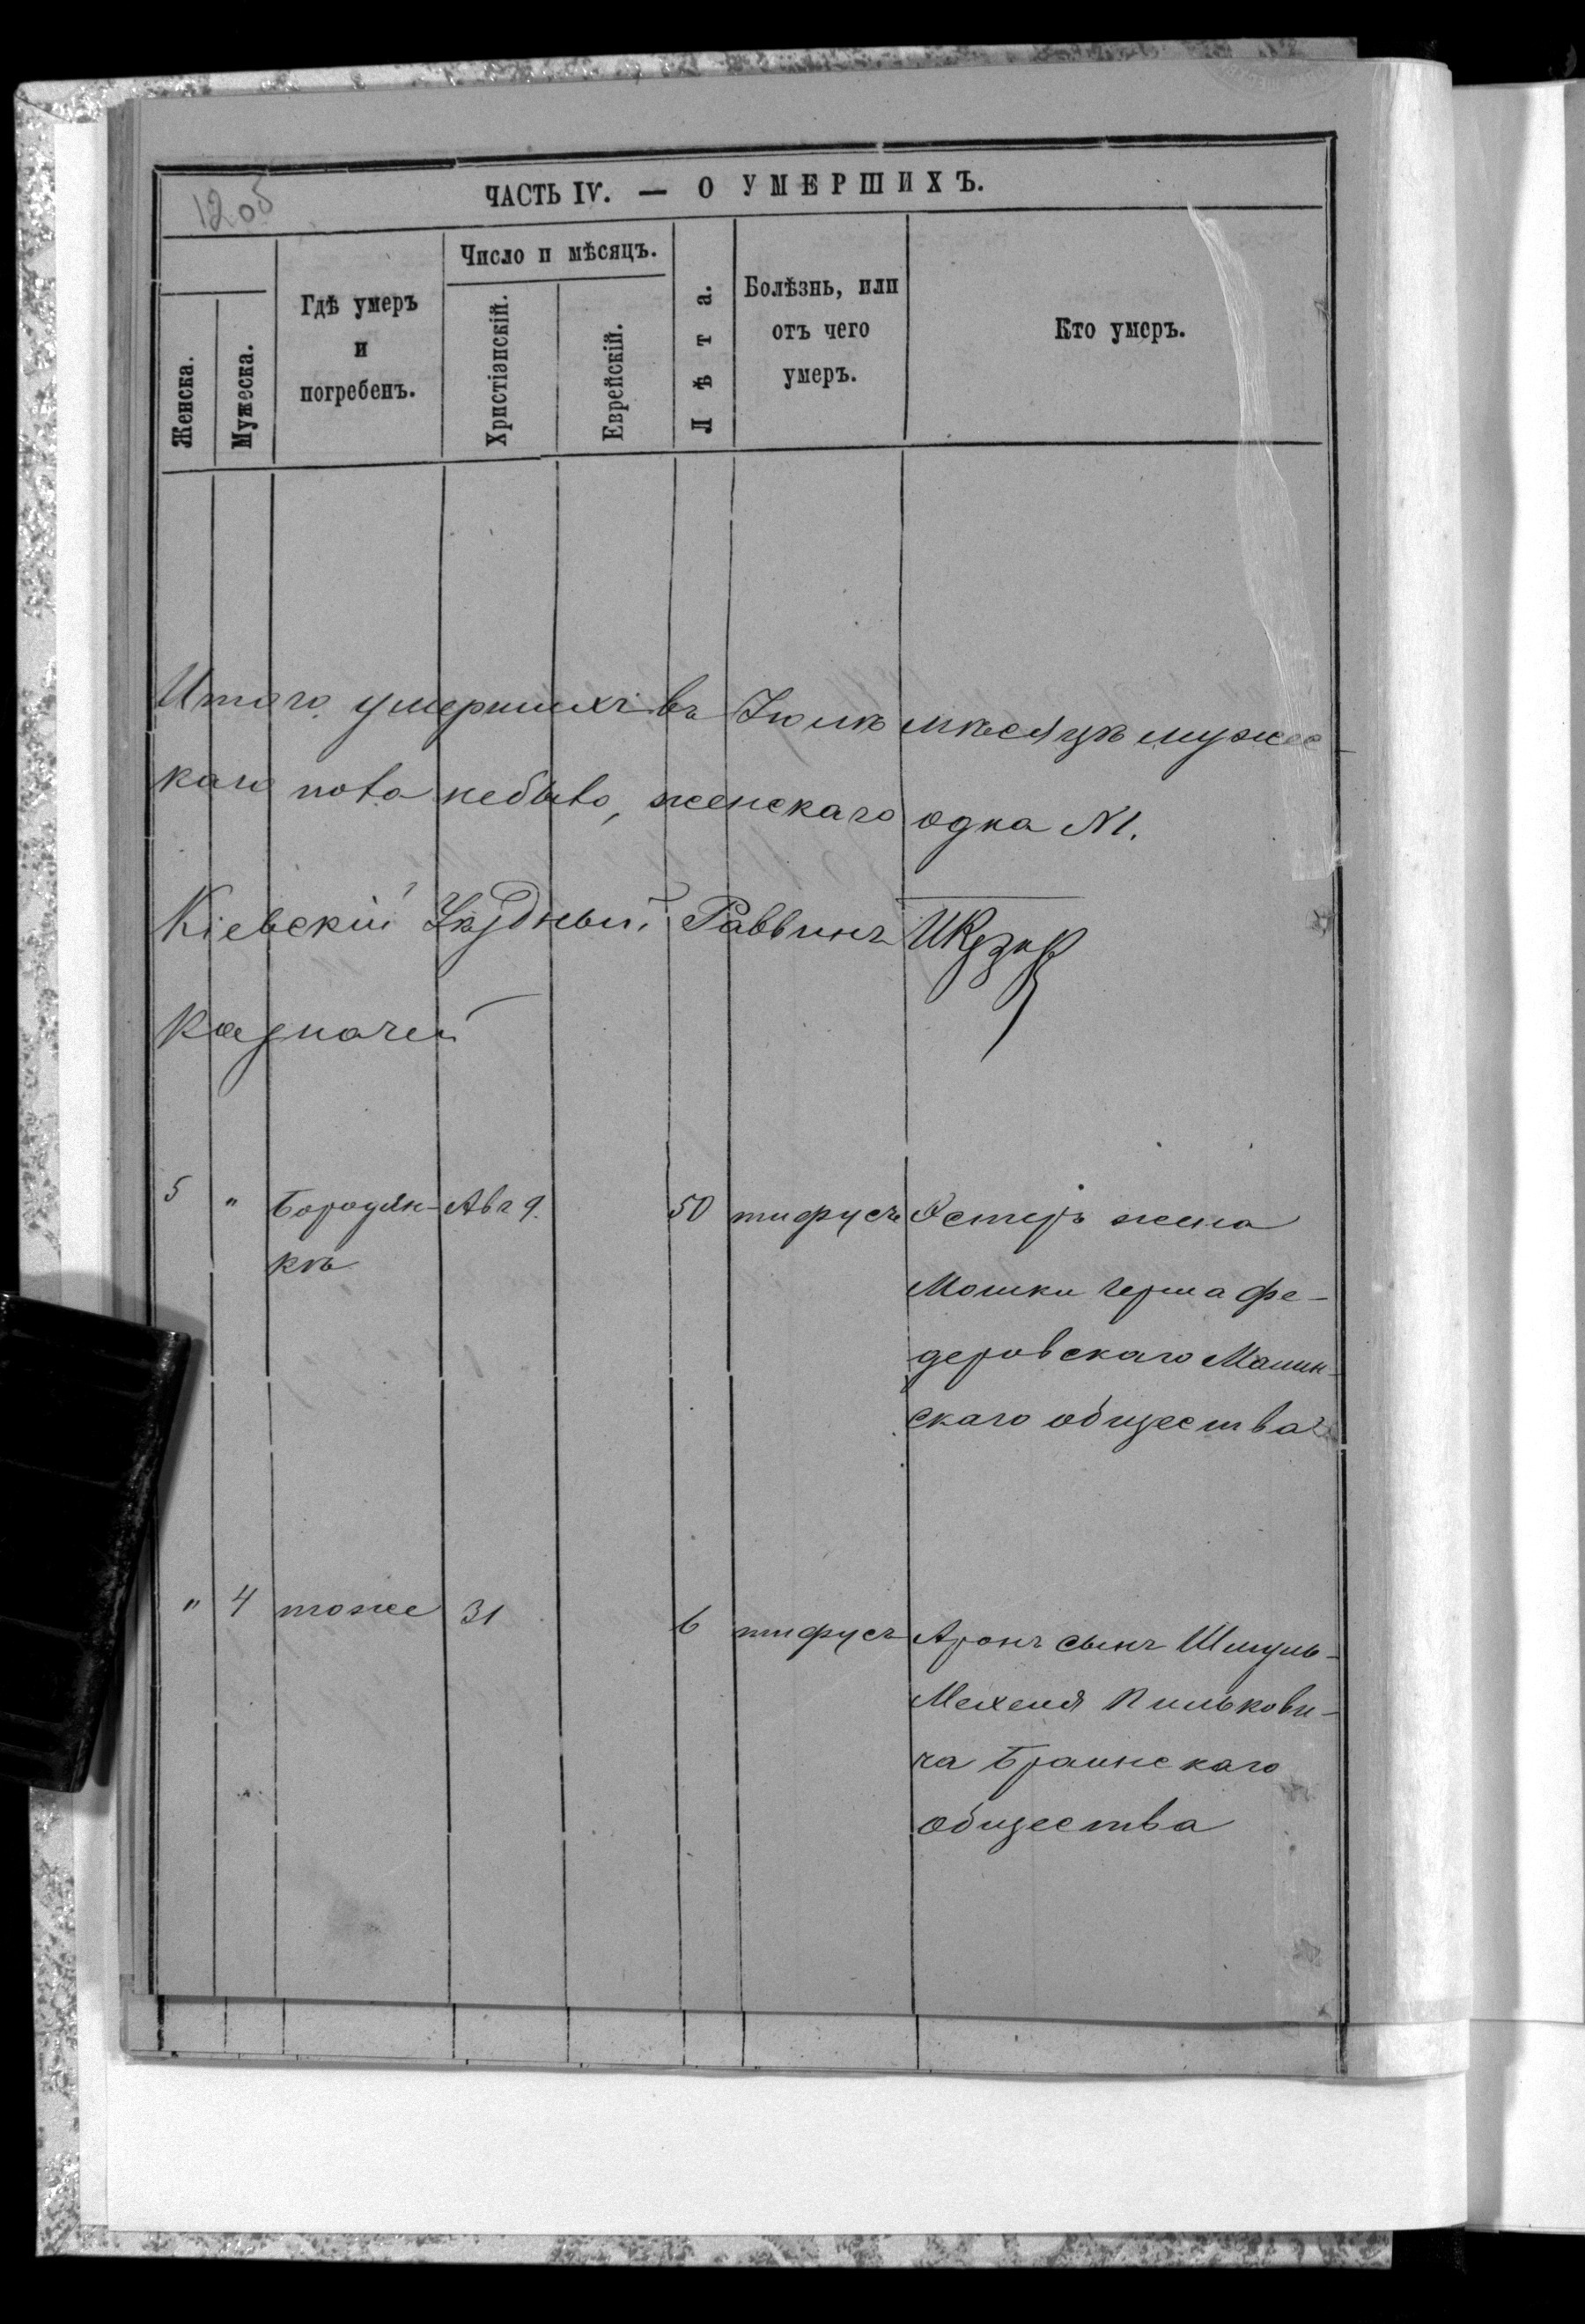 1205
ЧАСТЬ IV. — О УМЕРШИХЪ.
Женска.
Мужеска.
Гдѣ умеръ
и
погребенъ.
Число и мѣсяцъ.
Христіанскій.
Еврейскій.
Лѣта.
Болѣзнь, или
отъ чего
умеръ.
Кто умеръ.
Итого умершихъ въ Іюлѣ мѣсяцѣ мужес-
каго пола небыло, женскаго одна №1.
Кіевскій Уѣздный Раввинъ
Казначей
5 " Бородян- Авг 9. 50 тифусъ Эстеръ жена
кѣ
Мошки Герша Фе-
деровскаго Малин-
скаго общества
" 4 тоже 31 6 тифусъ Аронъ сынъ Шмуль-
Мехеля Пилькови-
ча Браинскаго
общества